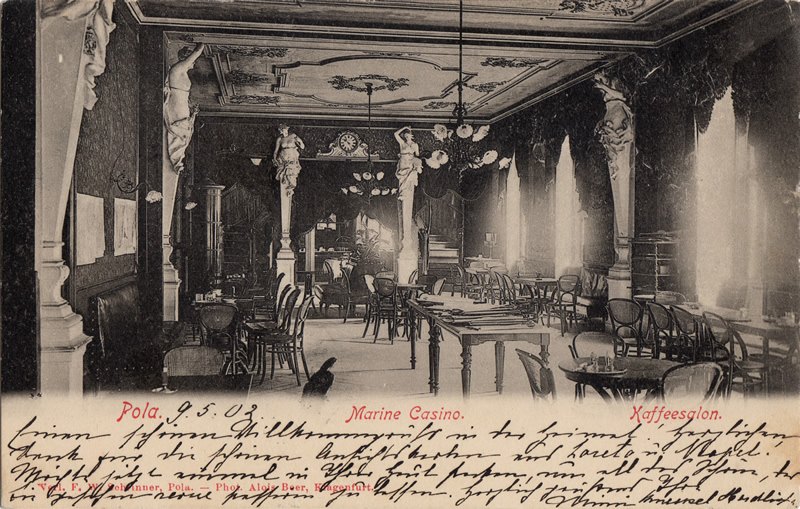 Pola. 9.5.02 Marine Casino. Kaffeesalon.
Einen schönen Willkommgruß in der Heimat! Herzlichen
Dank für die schönen Ansichtskarten aus Loreto u. Neapel.
Möchte jetzt einmal in Ihrer Haut stecken, um all das Schöne, das
Sie gesehen, Revue passieren zu lassen. Herzlich grüßend Ihre
Verl. F. W. Schrinner, Pola. — Phot. Alois Beer, Klagenfurt.